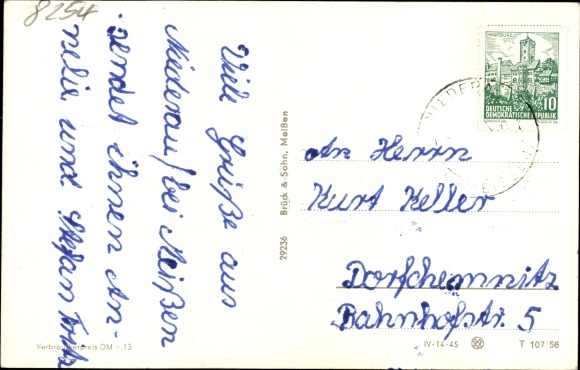 8254
Viele Grüße aus
Niederau/bei Meißen
sendet ihnen An-
nelie und Stefan
Verbraucherpreis DM -.15
29236 Brück & Sohn, Meißen
WARTBURG
10
DEUTSCHE
DEMOKRATISCHE REPUBLIK
NIEDERAU
An Herrn
Kurt Keller
Dorfchemnitz
Bahnhofstr. 5
IV-14-45 T 107/56